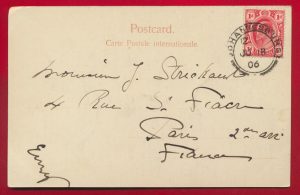 Postcard.
Carte Postale internationale.
JOHANNESBURG
JU 18
06
1d 1d
Monsieur J. Strichant
4 Rue St Fiacre
Paris 2me arr
France